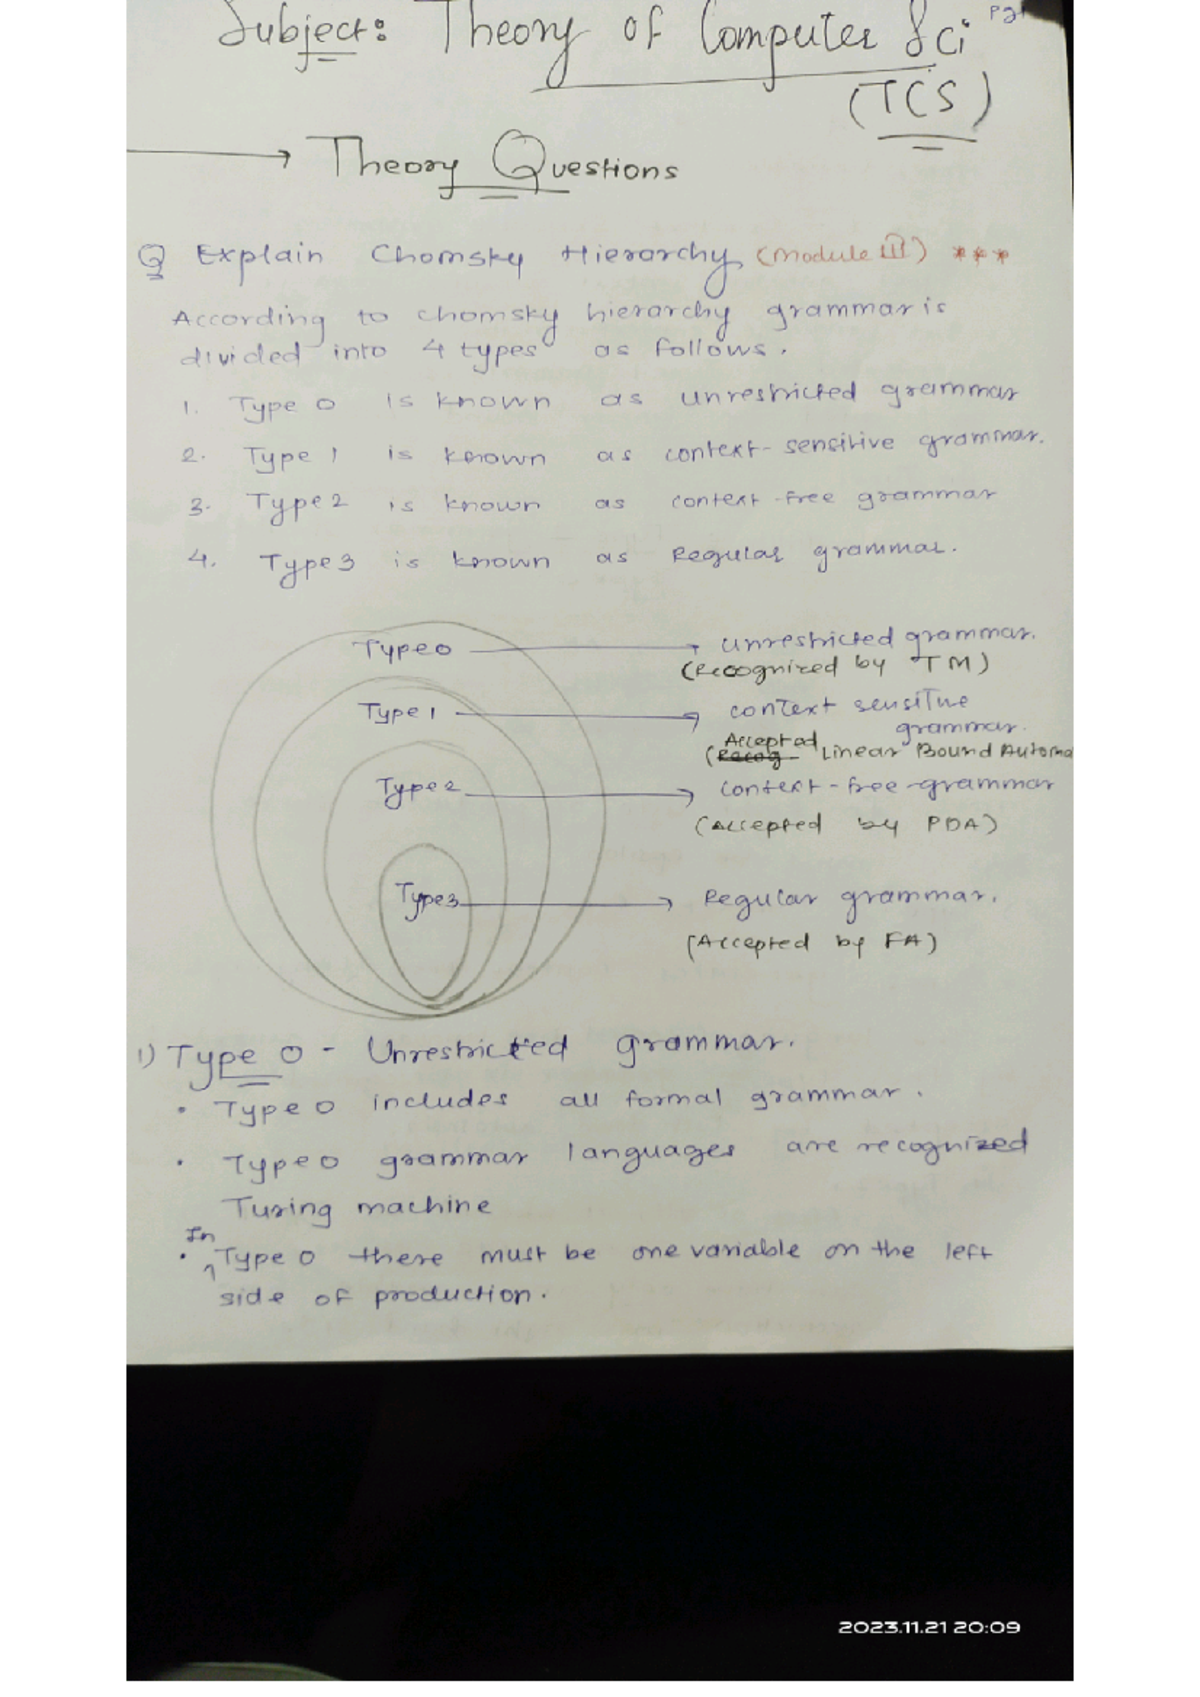 Subject: Theory of Computer Sci
(TCS)
→ Theory Questions
Q Explain Chomsky Hierarchy (Module III) ***
According to chomsky hierarchy grammar is
divided into 4 types as follows.
1. Type 0 is known as unrestricted grammar
2. Type 1 is known as context-sensitive grammar.
3. Type 2 is known as context-free grammar
4. Type 3 is known as Regular grammar.
Type 0 → unrestricted grammar.
(Recognized by TM)
Type 1 → context sensitive
grammar.
Accepted
(Recog Linear Bound Automa
Type 2 → context-free-grammar
(Accepted by PDA)
Type 3 → Regular grammar.
(Accepted by FA)
1) Type 0 - Unrestricted grammar.
• Type 0 includes all formal grammar.
• Type 0 grammar languages are recognized
Turing machine
In
• Type 0 there must be one variable on the left
side of production.
2023.11.21 20:09